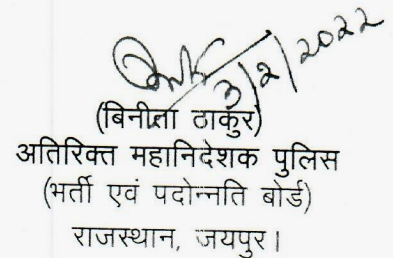 3/2/2022
(बिनीता ठाकुर)
अतिरिक्त महानिदेशक पुलिस
(भर्ती एवं पदोन्नति बोर्ड)
राजस्थान, जयपुर।